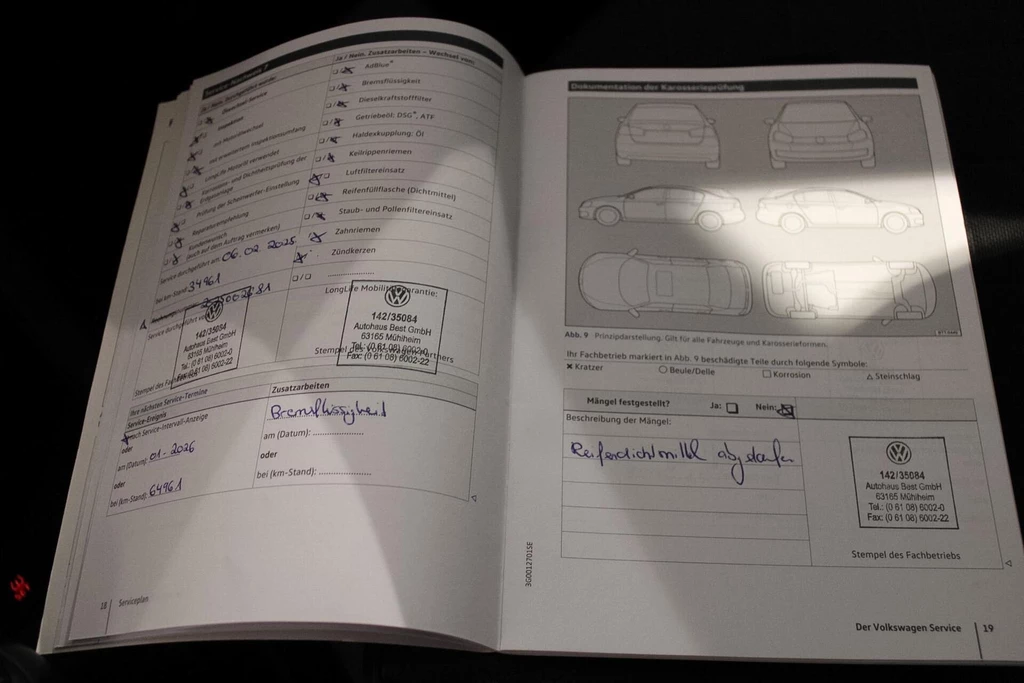 Ja / Nein, Zusatzarbeiten – Wechsel von:
AdBlue®
Bremsflüssigkeit
Dieselkraftstofffilter
Getriebeöl: DSG®, ATF
Haldexkupplung: Öl
Keilrippenriemen
Luftfiltereinsatz
Reifenfüllflasche (Dichtmittel)
Staub- und Pollenfiltereinsatz
Zahnriemen
Zündkerzen
Inspektion
mit Motorölwechsel
mit erweitertem Inspektionsumfang
LongLife Motoröl verwendet
Korrosions- und Dichtheitsprüfung der
Erdgasanlage
Prüfung der Scheinwerfer-Einstellung
Reparaturempfehlung
Kundenwunsch
(auch auf dem Auftrag vermerken)
Service durchgeführt am: 06.02.2025
bei km-Stand: 34961
Service durchgeführt von
142/35084
Autohaus Best GmbH
63165 Mühlheim
Tel.: (0 61 08) 6002-0
Fax: (0 61 08) 6002-22
Stempel des
LongLife Mobilitätsgarantie:
142/35084
Autohaus Best GmbH
63165 Mühlheim
Tel.: (0 61 08) 6002-0
Fax: (0 61 08) 6002-22
Stempel des Volkswagen Partners
Ihre nächsten Service-Termine
Service-Ereignis
nach Service-Intervall-Anzeige
oder
am (Datum): 01-2026
oder
bei (km-Stand): 64961
Zusatzarbeiten
Bremsflüssigkeit
am (Datum):
oder
bei (km-Stand):
18 Serviceplan
Dokumentation der Karosserieprüfung
Abb. 9 Prinzipdarstellung. Gilt für alle Fahrzeuge und Karosserieformen.
Ihr Fachbetrieb markiert in Abb. 9 beschädigte Teile durch folgende Symbole:
Kratzer
Beule/Delle
Korrosion
Steinschlag
Mängel festgestellt?
Ja:
Nein:
Beschreibung der Mängel:
142/35084
Autohaus Best GmbH
63165 Mühlheim
Tel.: (0 61 08) 6002-0
Fax: (0 61 08) 6002-22
Stempel des Fachbetriebs
3G0012701SE
Der Volkswagen Service 19